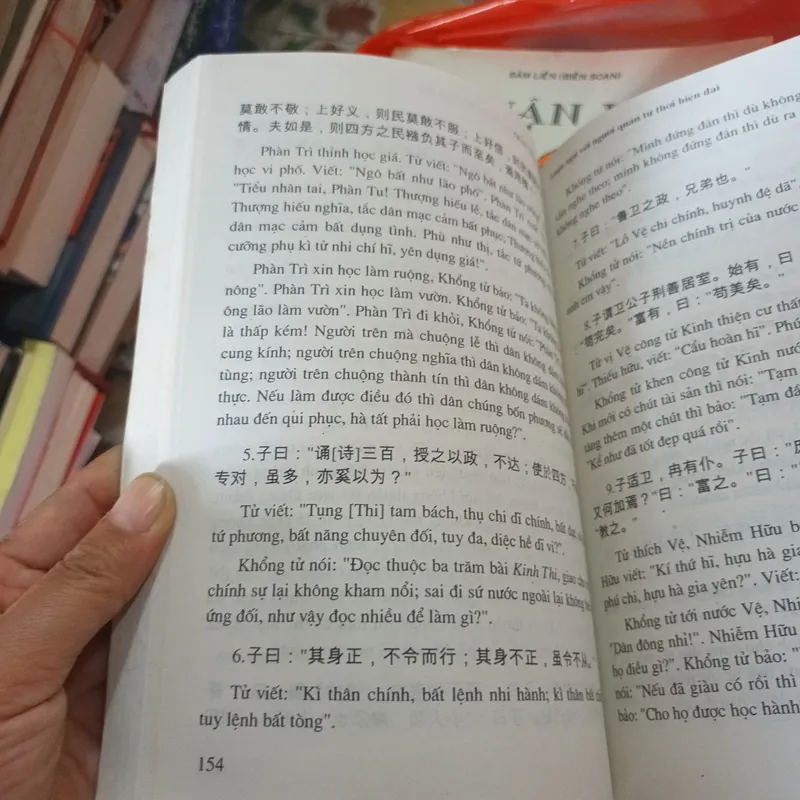 莫敢不敬；上好义，则民莫敢不服；上好信，则民
情。夫如是，则四方之民襁负其子而至矣，焉用
Phàn Trì thỉnh học giá. Tử viết: "Ngô bất như lão
học vi phố. Viết: "Ngô bất như lão phố". Phàn Trì xuất.
"Tiểu nhân tai, Phàn Tu! Thượng hiếu lễ, tắc dân mạc
Thượng hiếu nghĩa, tắc dân mạc cảm bất phục; Thượng hiếu
dân mạc cảm bất dụng tình. Phù như thị, tắc tứ phương
cưỡng phụ kì tử nhi chí hĩ, yên dụng giá!".
Phàn Trì xin học làm ruộng, Khổng tử bảo: "Ta không
nông". Phàn Trì xin học làm vườn. Khổng tử bảo: "Ta không
ông lão làm vườn". Phàn Trì đi khỏi, Khổng tử nói: "Phàn
là thấp kém! Người trên mà chuộng lễ thì dân không dám
cung kính; người trên chuộng nghĩa thì dân không dám không
tùng; người trên chuộng thành tín thì dân không dám không
thực. Nếu làm được điều đó thì dân chúng bốn phương sẽ
nhau đến qui phục, hà tất phải học làm ruộng?".
5.子曰："诵[诗]三百，授之以政，不达；使於四方，不
专对，虽多，亦奚以为？"
Tử viết: "Tụng [Thi] tam bách, thụ chi dĩ chính, bất đạt,
tứ phương, bất năng chuyên đối, tuy đa, diệc hề dĩ vi?".
Khổng tử nói: "Đọc thuộc ba trăm bài Kinh Thi, giao cho
chính sự lại không kham nổi; sai đi sứ nước ngoài lại không
ứng đối, như vậy đọc nhiều để làm gì?".
6.子曰："其身正，不令而行；其身不正，虽令不从。"
Tử viết: "Kì thân chính, bất lệnh nhi hành; kì thân bất
tuy lệnh bất tòng".
154
ĐÀM LIÊN (BIÊN SOẠN)
Luận ngữ với người quân tử thời hiện đại
Khổng tử nói: "Mình đứng đắn thì dù không
dân nghe theo; mình không đứng đắn thì dù ra
không nghe theo".
7.子曰："鲁卫之政，兄弟也。"
Tử viết: "Lỗ Vệ chi chính, huynh đệ dã"
Khổng tử nói: "Nền chính trị của nước
anh em vậy".
8.子谓卫公子荆善居室。始有，曰
"苟完矣。"富有，曰："苟美矣。"
Tử vị Vệ công tử Kinh thiện cư thất
hĩ". Thiếu hữu, viết: "Cẩu hoàn hĩ". Phú
Khổng tử khen công tử Kinh nước
Khi mới có chút tài sản thì nói: "Tạm
tăng thêm một chút thì bảo: "Tạm đầ
"Kể như đã tốt đẹp quá rồi".
9.子适卫，冉有仆。子曰："庶
又何加焉？"曰："富之。"曰："
"教之。"
Tử thích Vệ, Nhiễm Hữu b
Hữu viết: "Kí thứ hĩ, hựu hà gia
phú chi, hựu hà gia yên?". Viết:
Khổng tử tới nước Vệ, Nhiễm
"Dân đông nhỉ!". Nhiễm Hữu
họ điều gì?". Khổng tử bảo: "
nói: "Nếu đã giàu có rồi thì
bảo: "Cho họ được học hành